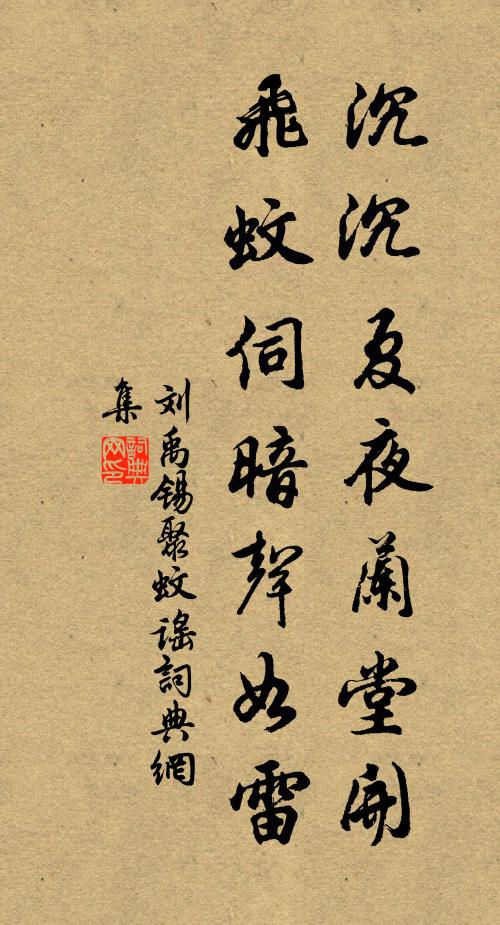 沉沉夏夜蘭堂開
飛蚊伺暗聲如雷
刘禹锡聚蚊谣詞典網
集
詞典网印